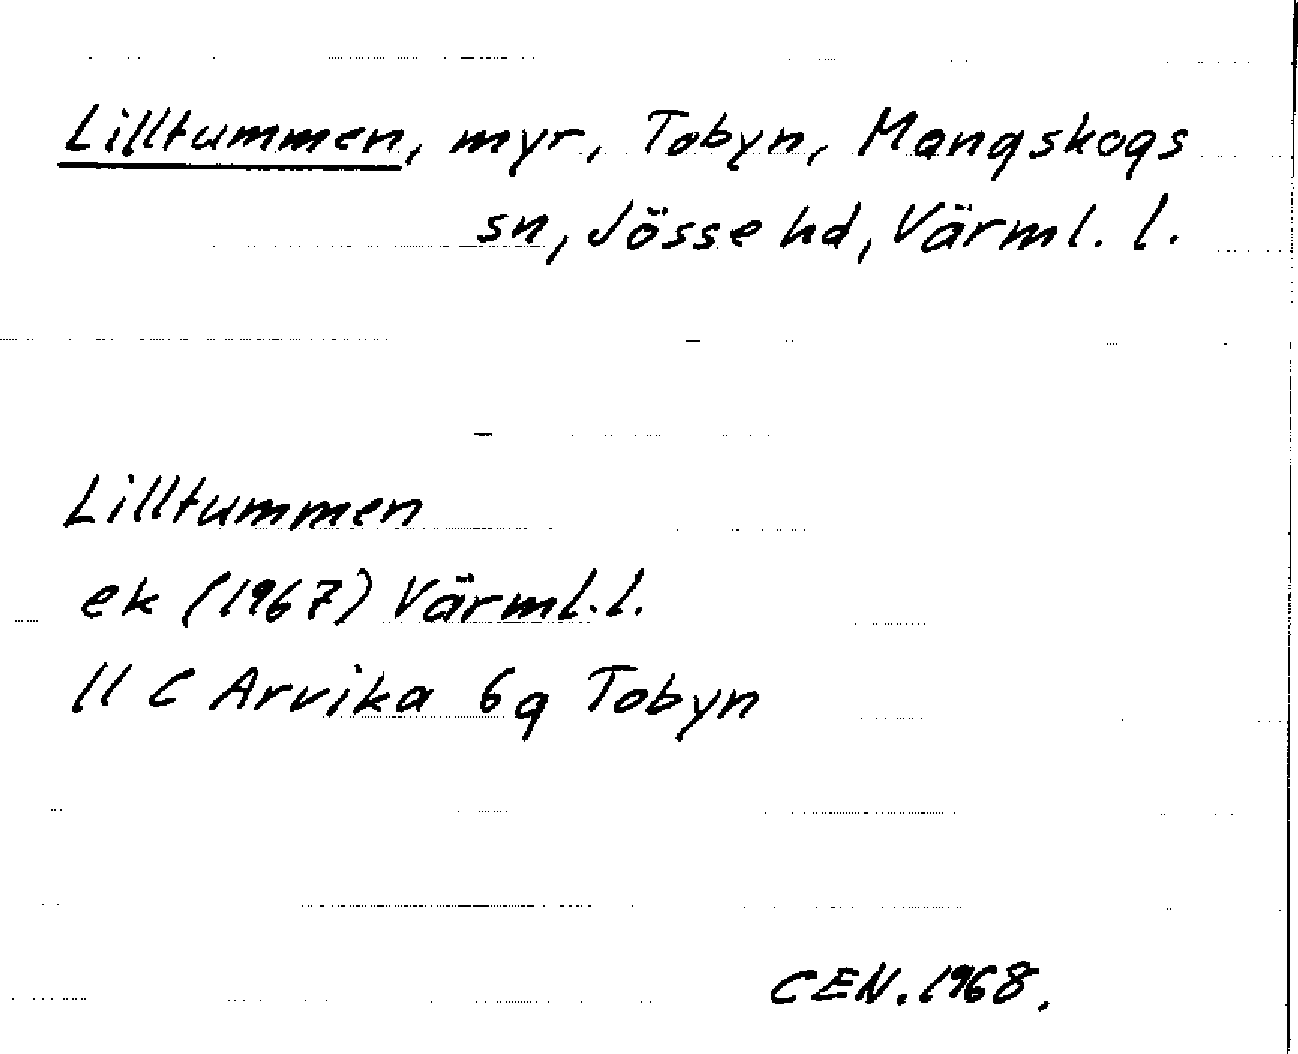 Lilltummen, myr, Tobyn, Mangskogs
sn, Jösse hd, Värml. l.
Lilltummen
ek (1967) Värml. l.
11 C Arvika 6g Tobyn
CEN. 1968.